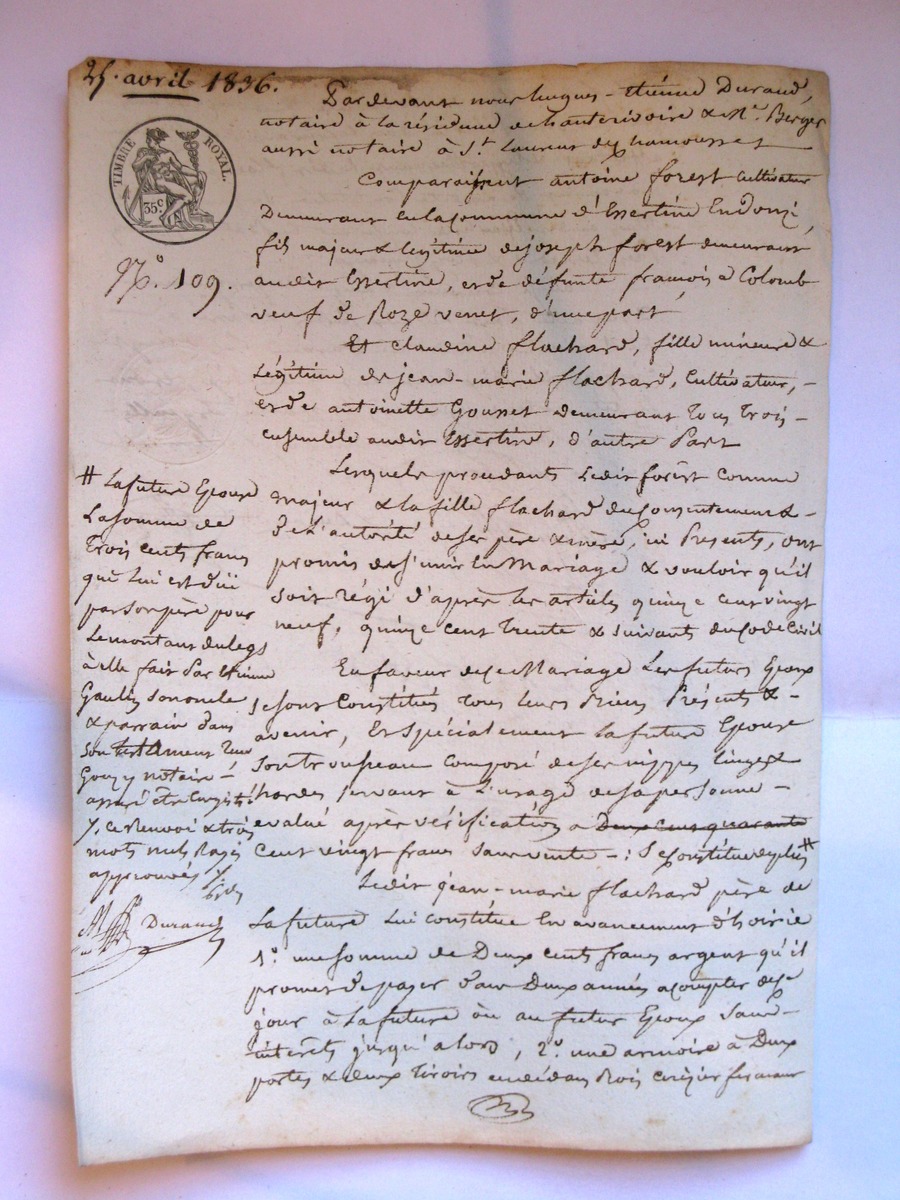 25. avril 1836.
TIMBRE ROYAL.
35c
N.o 109.
Pardevant nous hugues-étienne Durand,
notaire à la résidence de hauterivoire & Me. Berger
aussi notaire à St. Laurent de chamousset
Comparaissent antoine forest Cultivateur
Demeurant en la commune d'Essertine En Donzi,
fils majeur & légitime de joseph forest demeurant
audit Essertine, et de défunte françoise Colomb
veuf de Roze venet, d'une part,
Et claudine flachard, fille mineure &
Légitime de jean-marie flachard, Cultivateur,
et de antoinette Gousset demeurant tous trois
ensemble audit Essertine, d'autre Part
Lesquels procédants ledit forest comme
majeur & la fille flachard du consentement &
de L'autorité de ses père & mère, ici Présents, ont
promis de s'unir En Mariage & vouloir qu'il
soit régi d'après les articles quinze cent vingt
neuf, quinze cent trente & suivants du Code Civil
En faveur de ce Mariage Les futurs Epoux
se sont Constitués tous leurs Biens Présents &
avenir, Et Spécialement la future Epouse
son trousseau composé de ses nippes linges &
hardes servant à L'usage de sa personne
evalué après vérification a Deux cent quarante
Cent vingt francs sans vente : Se Constitue de plus #
Ledit jean-marie flachard père de
La future Lui constitue En avancement d'hoirie
1°. une somme de Deux cents francs argent qu'il
promet de payer dans Deux années a compter de ce
jour à La future ou au futur Epoux Sans
intérêts jusqu'alors, 2°. une armoire à Deux
portes & deux tiroirs au dedans Bois cerisier fermant
# La future Epouse
La somme de
Trois cents francs
qui lui est düe
par son père pour
Le montant du legs
à elle fait Par étienne
Gaulin son oncle
& parrain dans
son testament reçu
Gouzy notaire
assuré être Enregistré
/. ce Renvoi & trois
mots nuls Rayés
approuvés /.
Durand